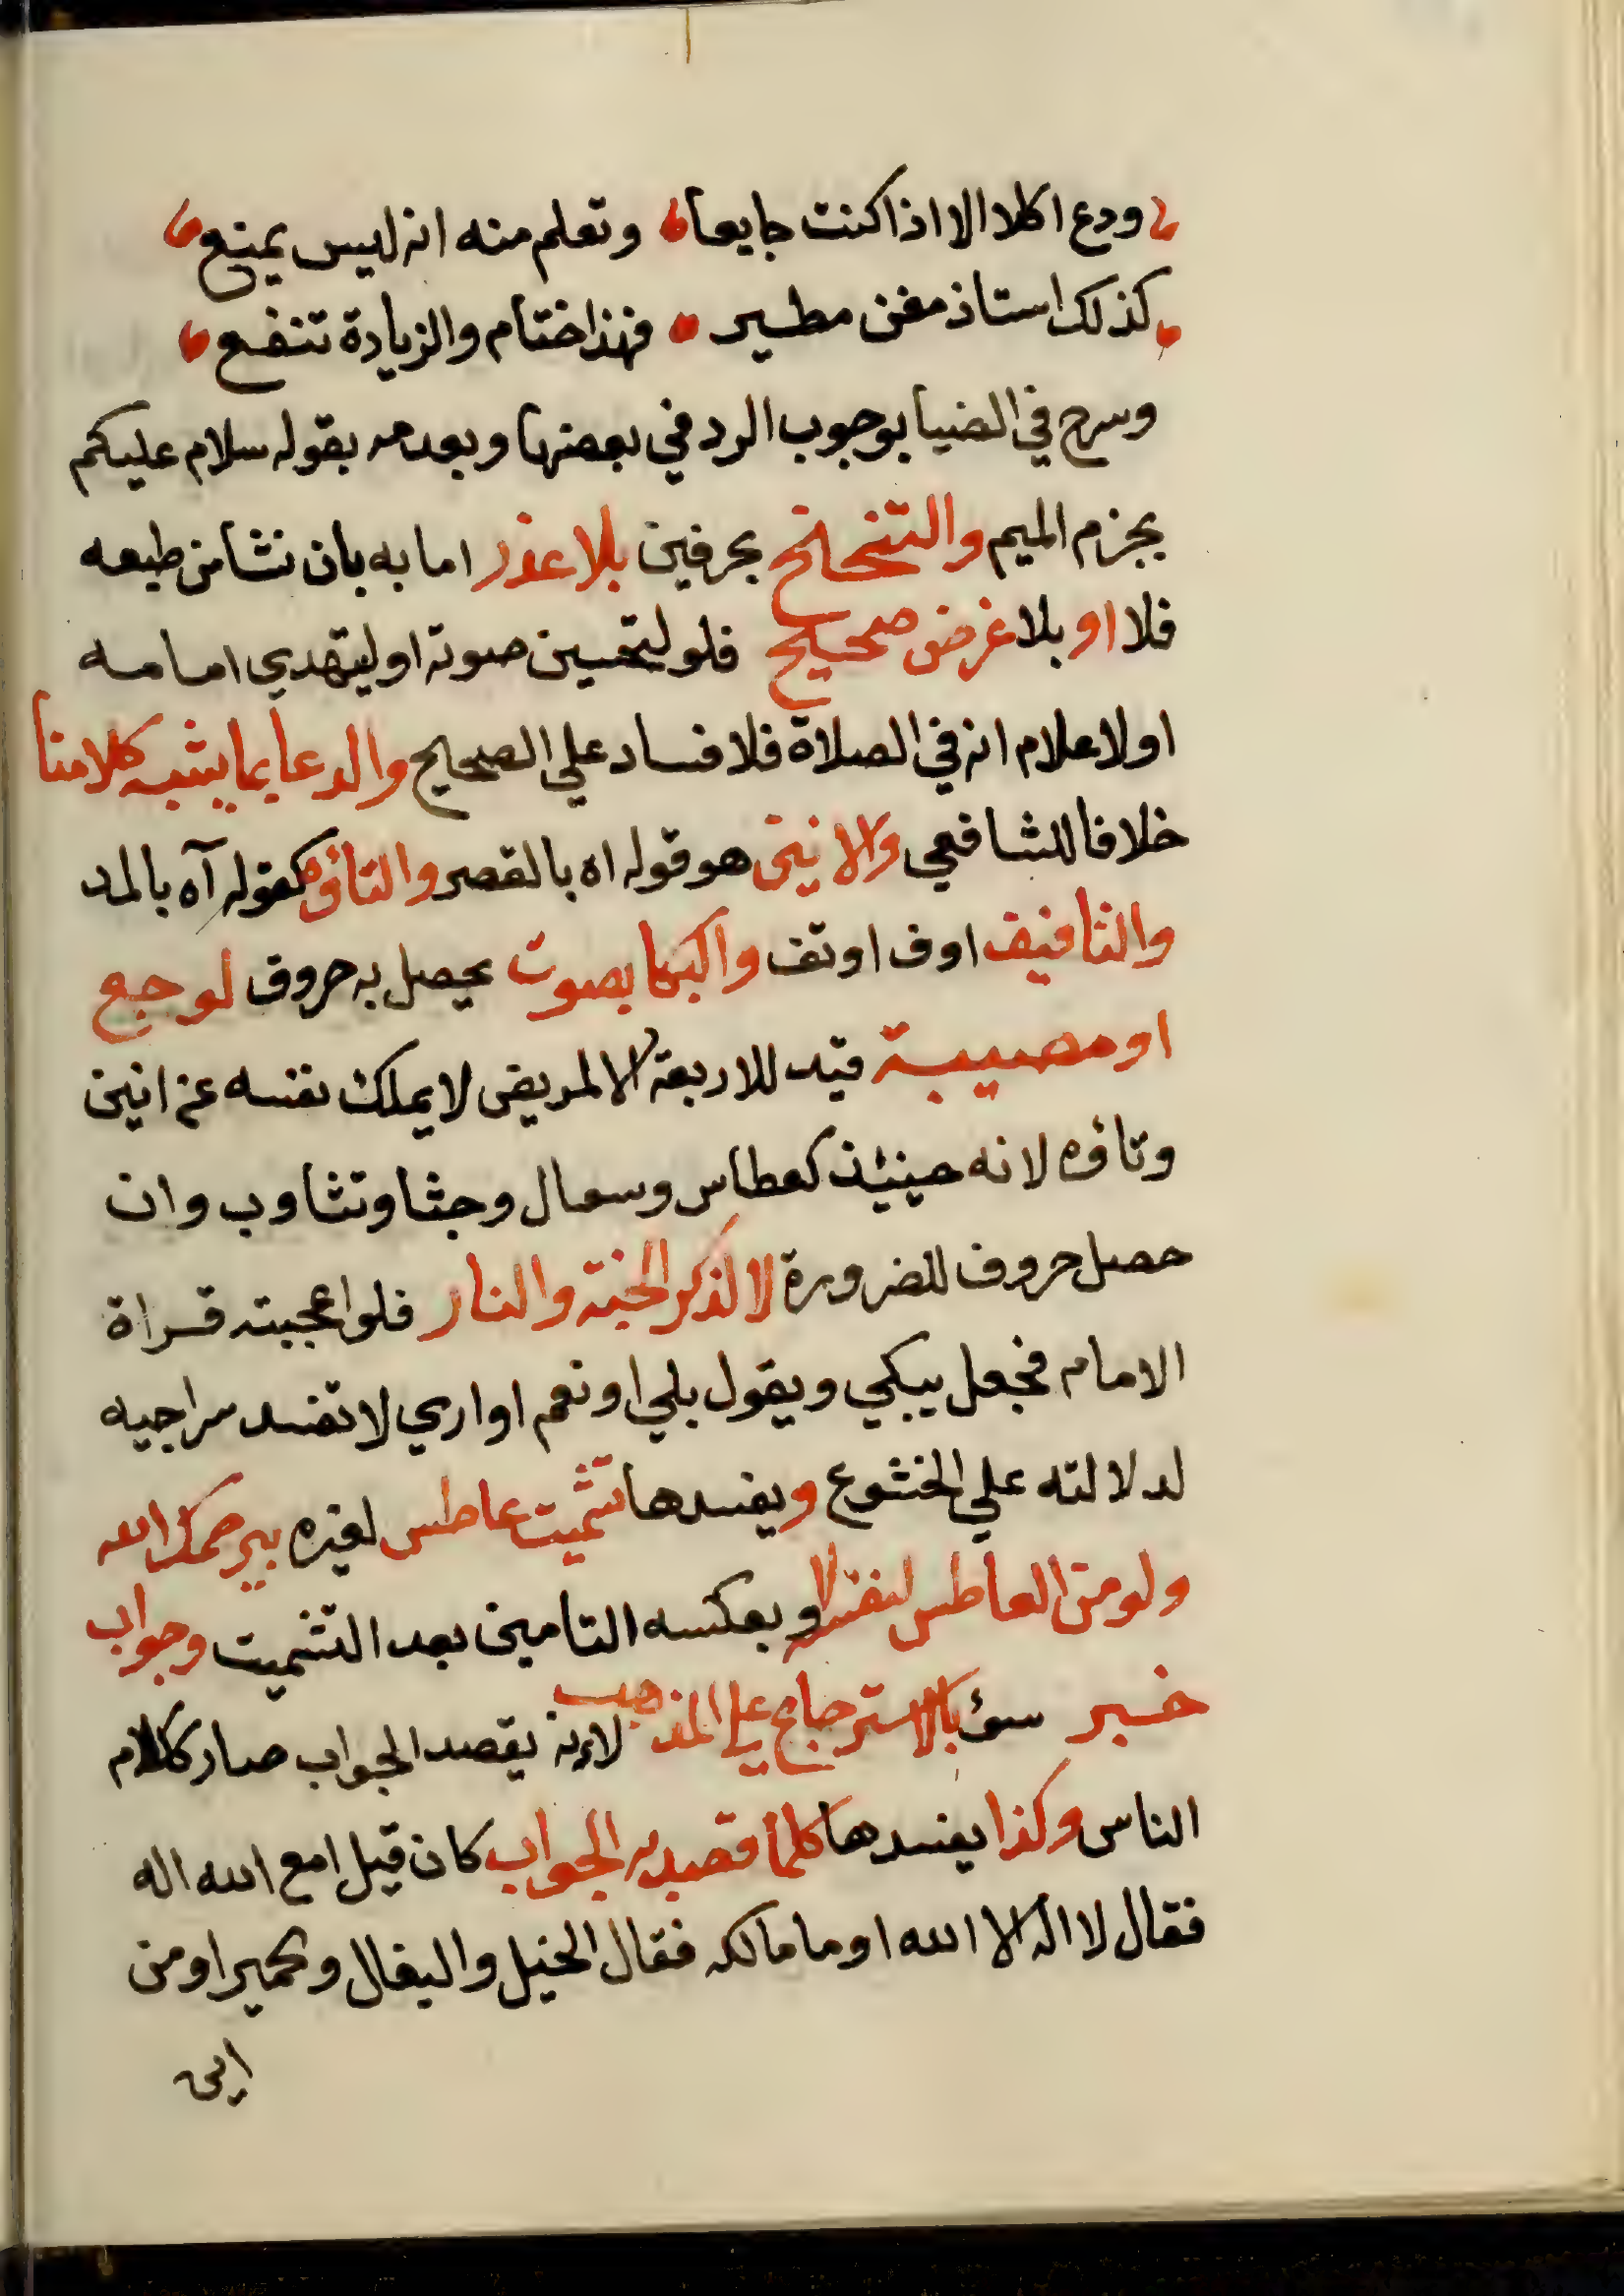 ودع اكلا الا اذا كنت جايعا وتعلم منه انه ليس يمنع
كذلك استاذ مغن مطير فهذا ختام والزيادة تنفع
وسرح في الضيا بوجوب الرد في بعضها وبعدمه بقوله سلام عليكم
بجزم الميم والتنحنح بحرفين بلا عذر اما به بان نشا من طبعه
فلا او بلا غرض صحيح فلو لتحسين صوته او ليهتدي امامه
او لاعلام انه في الصلاة فلا فساد علي الصحيح والدعا بما يشبه كلامنا
خلافا للشافعي والانين هو قوله اه بالقصر والتاؤه كقوله آه بالمد
والتافيف اوف او تف والبكا بصوت يحصل به حروف لوجع
او مصيبة قيد للاربعة الا لمريض لا يملك نفسه عن انين
وتاؤه لانه حينئذ كعطاس وسعال وجشا وتثاوب وان
حصل حروف للضرورة لا لذكر الجنة والنار فلو اعجبته قراة
الامام فجعل يبكي ويقول بلي او نعم او اري لا تفسد سراجيه
لدلالته علي الخشوع ويفسدها تشميت عاطس لغيره بيرحمك الله
ولو من العاطس لنفسه لا وبعكسه التامين بعد التشميت وجواب
خبر سئ بالاسترجاع علي المذهب لانه بقصد الجواب صار ككلام
الناس وكذا يفسدها كلما قصد به الجواب كان قيل امع الله اله
فقال لا اله الا الله او ما مالك فقال الخيل والبغال والحمير او من
اين